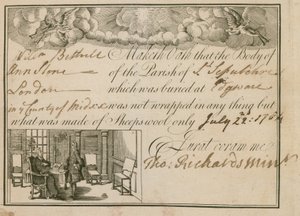 Bethell Maketh Oath that the Body of
Ann Stone of the Parish of St. Sepulchre
London which was buried at
in County of Middx was not wrapped in any thing but
what was made of Sheeps wool only July 22: 17
Jurat coram me
Tho: Richards Minr